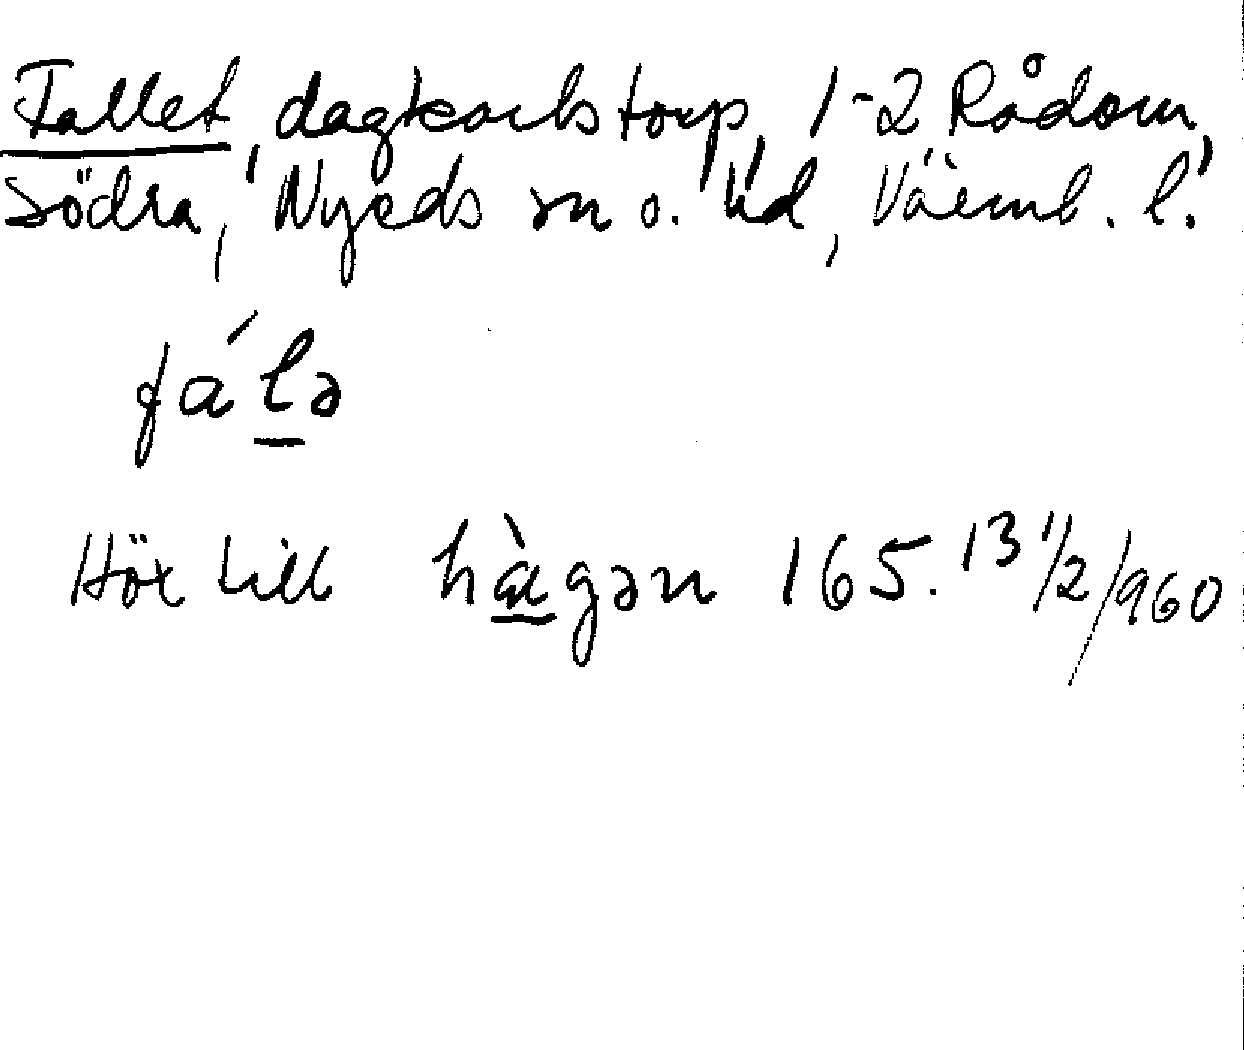 Fallet, dagkarlstorp, 1-2 Rådom,
Södra, Nyeds sn o. hd, Värml. l.
fá lə
Hör till hàgən 165. 13 1/2/960